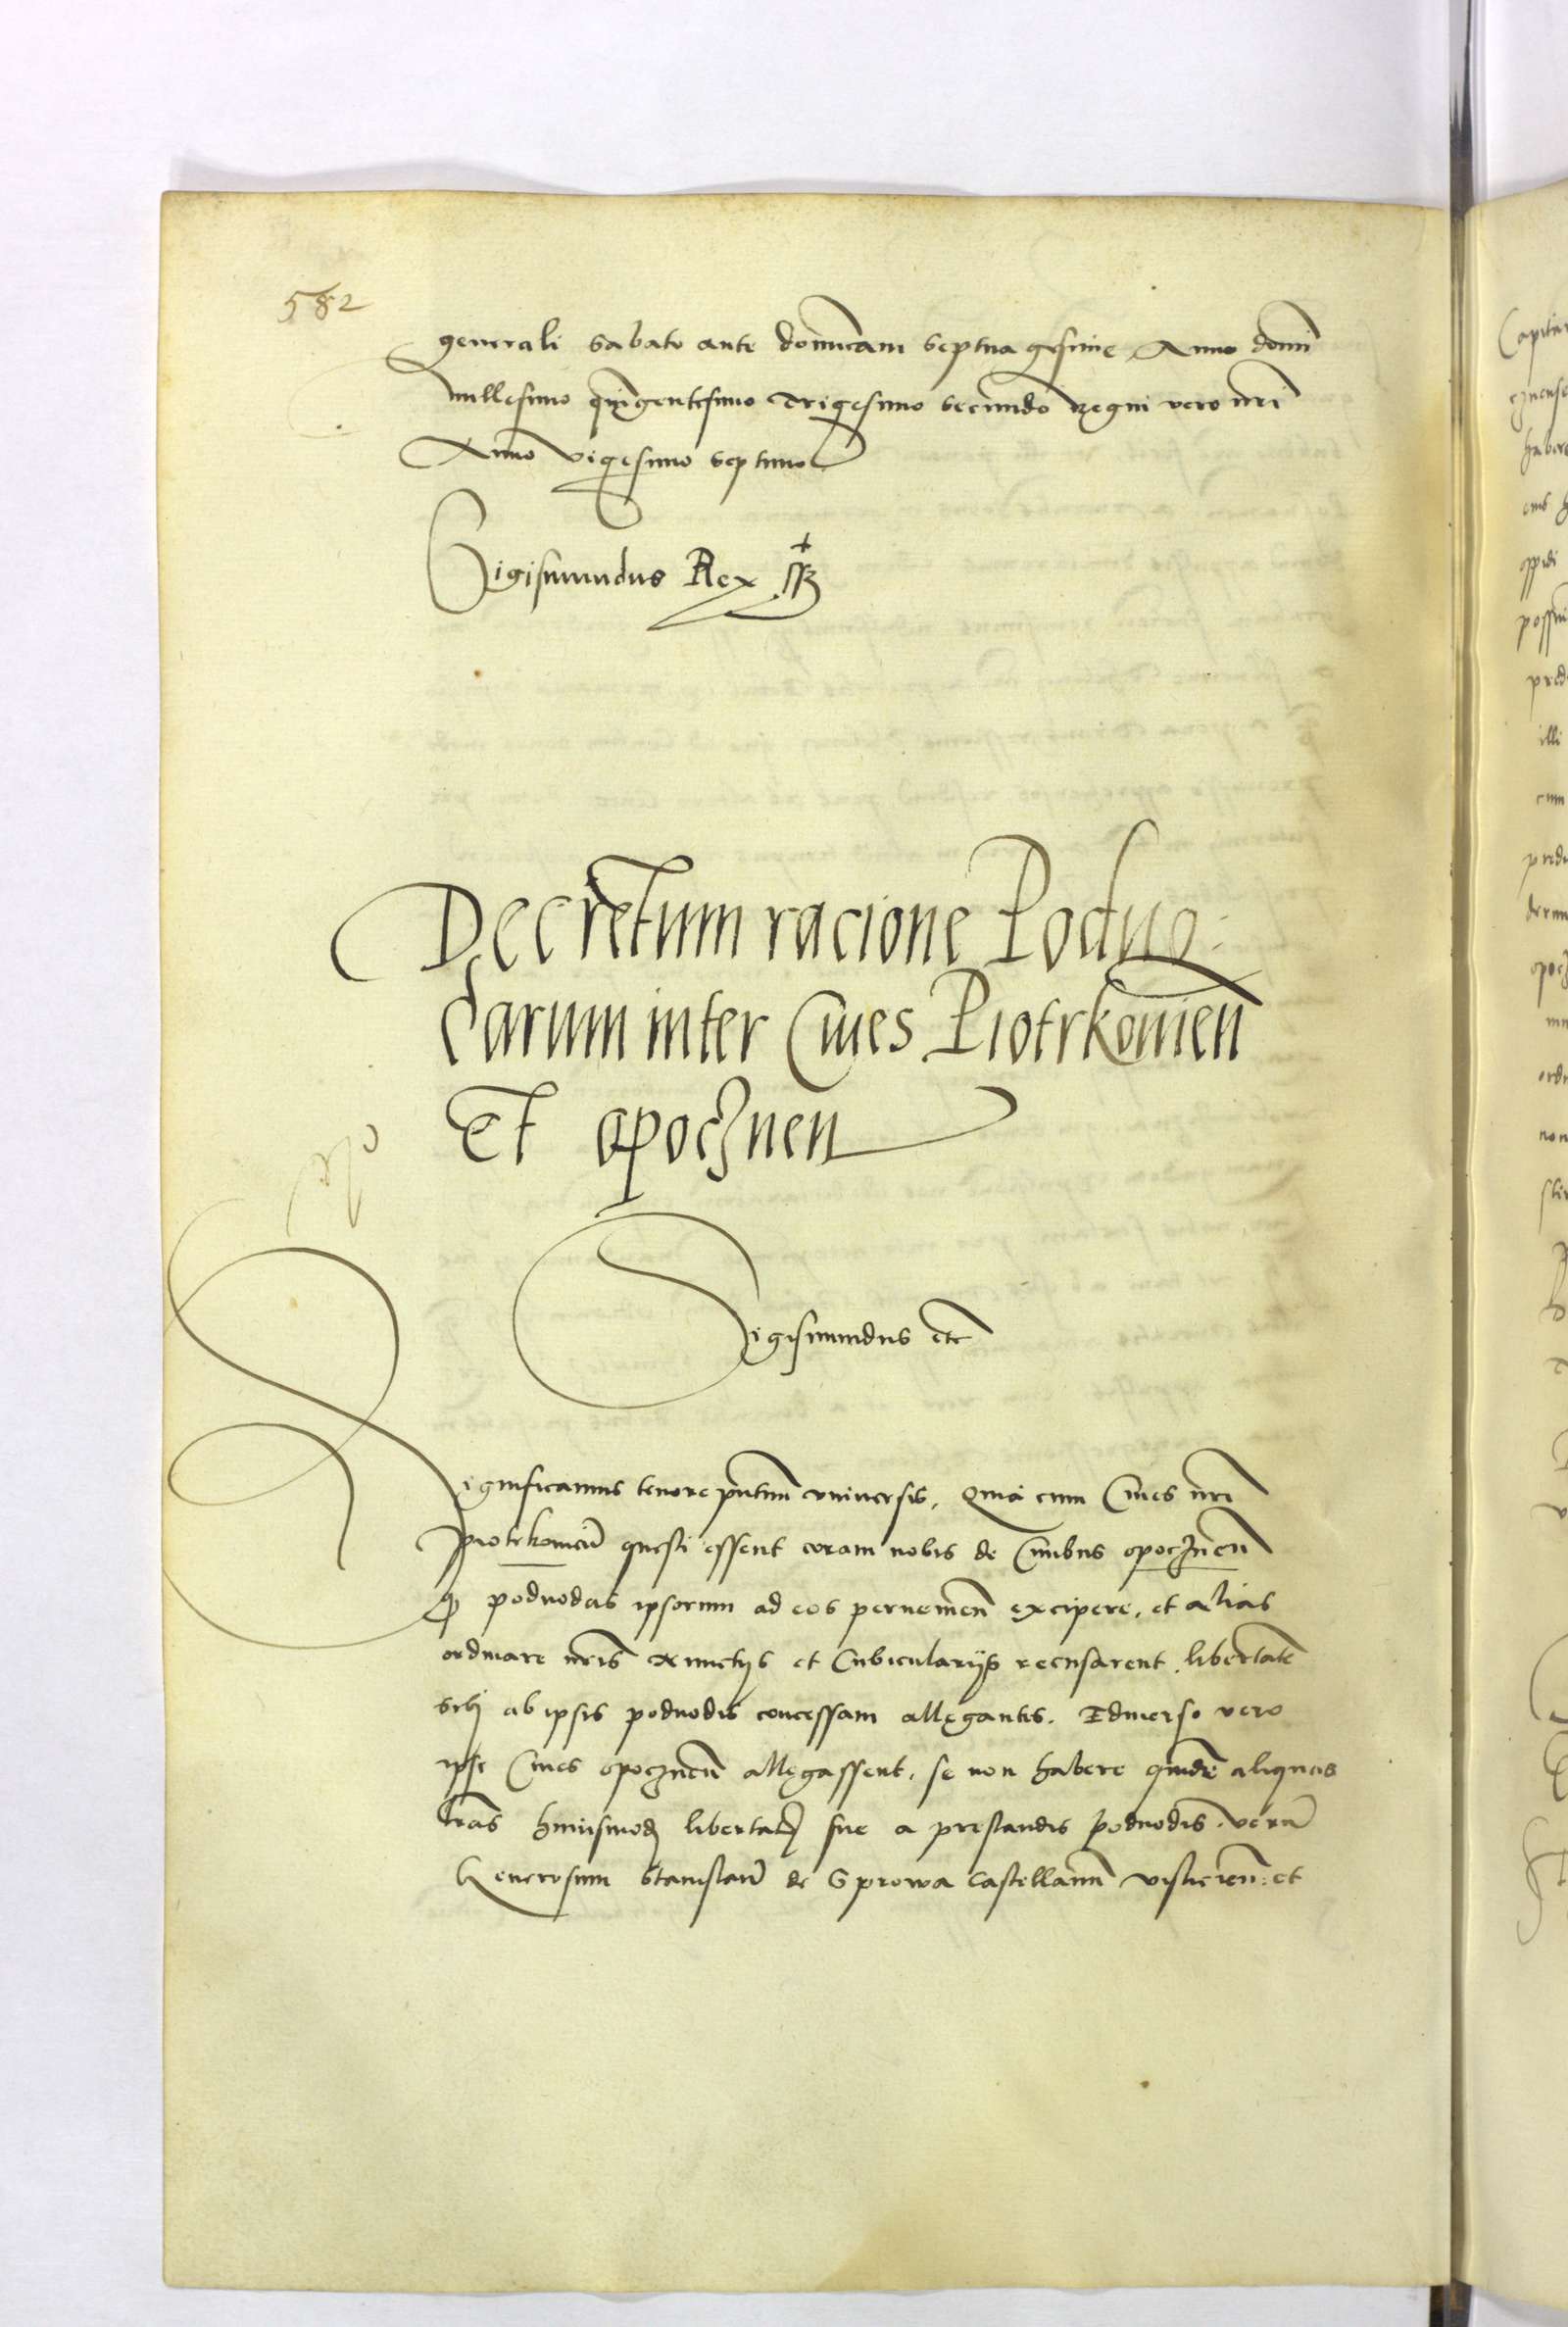 582
generali sabato ante dominicam septuagesime Anno domi
millesimo quingentesimo Trigesimo secundo Regni vero nri
Anno vigesimo septimo
Sigismundus Rex
Decretum racione Podwo
darum inter Cives Piotrkovien
Et opocznen
Sigismundus etc
Significamus tenore pntium universis. Quia cum Cives nri
piotrkovien questi essent coram nobis de Civibus opocznen
q podvodas ipsorum ad eos pervenien excipere, et alias
ordinare nris Nunctijs et Cubicularijs recusarent, libertate
sibi ab ipsis podvodis concessam allegantes. Ediverso vero
ipsi Cives opocznen allegassent, se non habere quide aliquas
lras huiusmodi libertatis sue a prestandis podvodis. veru
Generosum Stanislau de Sprowa Castellanum visliciensen: et